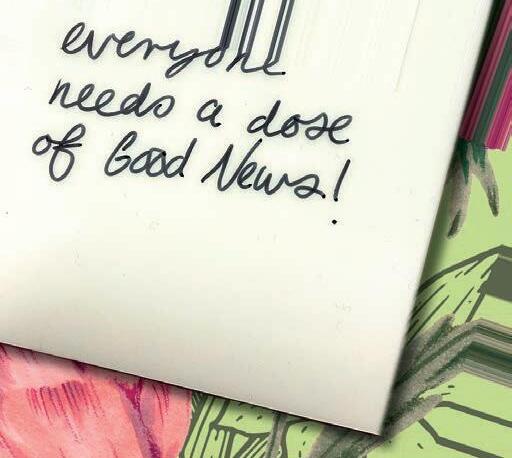 everyone
needs a dose
of Good News!